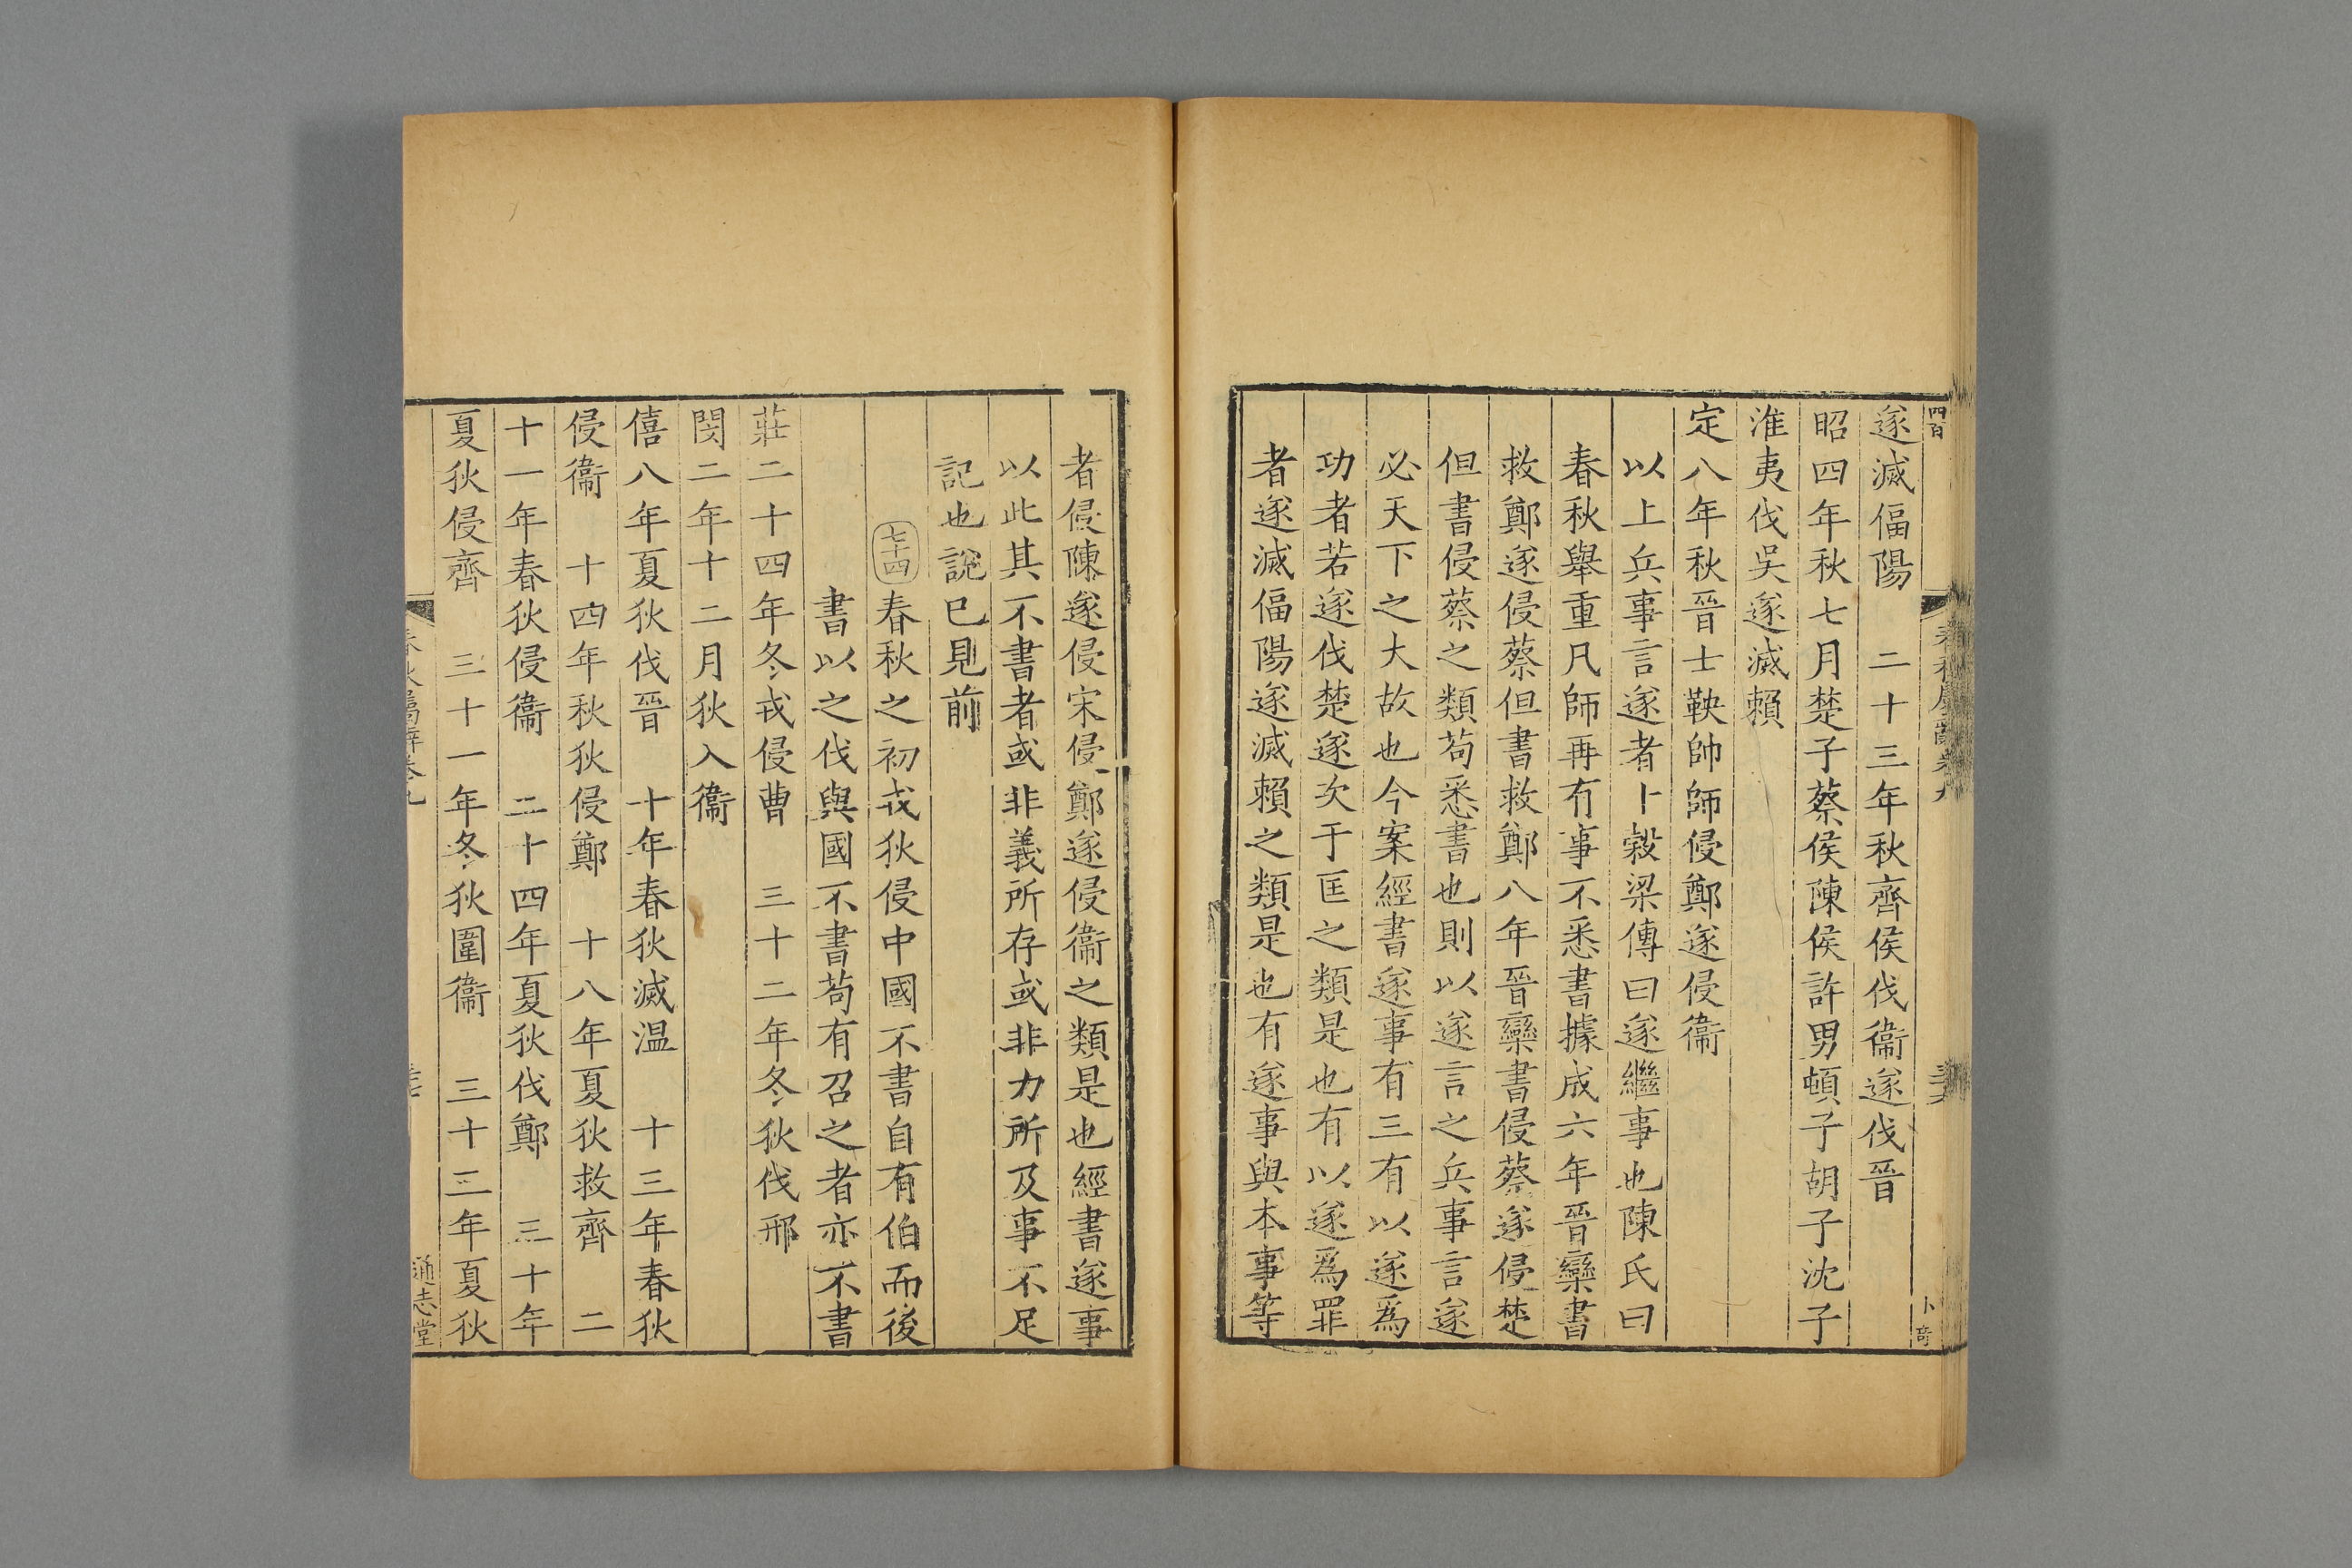 四百
春秋屬辭卷九
卜奇
遂滅偪陽　二十三年秋齊侯伐衞遂伐晉
昭四年秋七月楚子蔡侯陳侯許男頓子胡子沈子
淮夷伐吳遂滅賴
定八年秋晉士鞅帥師侵鄭遂侵衞
以上兵事言遂者十榖梁傳曰遂繼事也陳氏曰
春秋舉重凡師再有事不悉書據成六年晉欒書
救鄭遂侵蔡但書救鄭八年晉欒書侵蔡遂侵楚
但書侵蔡之類苟悉書也則以遂言之兵事言遂
必天下之大故也今案經書遂事有三有以遂爲
功者若遂伐楚遂次于匡之類是也有以遂爲罪
者遂滅偪陽遂滅賴之類是也有遂事與本事等
者侵陳遂侵宋侵鄭遂侵衞之類是也經書遂事
以此其不書者或非義所存或非力所及事不足
記也說已見前
七十四春秋之初戎狄侵中國不書自有伯而後
書以之伐與國不書苟有召之者亦不書
莊二十四年冬戎侵曹　三十二年冬狄伐邢
閔二年十二月狄入衞
僖八年夏狄伐晉　十年春狄滅温　十三年春狄
侵衞　十四年秋狄侵鄭　十八年夏狄救齊　二
十一年春狄侵衞　二十四年夏狄伐鄭　三十年
夏狄侵齊　三十一年冬狄圍衞　三十三年夏狄
春秋屬辭卷九
通志堂